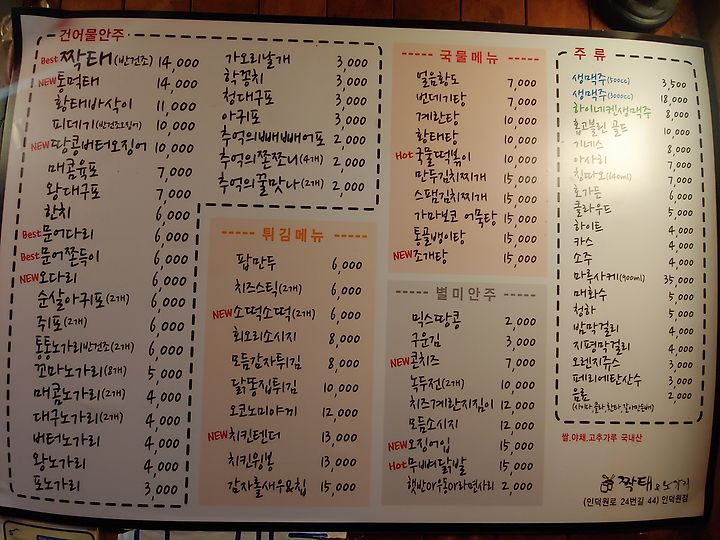 건어물안주
Best 짝태(반건조) 14,000
NEW 통먹태 14,000
황태바삭이 11,000
피데기(반건조오징어) 10,000
NEW 땅콩버터오징어 10,000
매콤육포 7,000
왕대구포 7,000
한치 6,000
Best 문어다리 6,000
Best 문어쫀득이 6,000
NEW 오다리 6,000
순살아귀포(2개) 6,000
쥐포(2개) 6,000
통통노가리반건조(2개) 6,000
꼬마노가리(8개) 5,000
매콤노가리(2개) 4,000
대구노가리(2개) 4,000
버터노가리 4,000
왕노가리 4,000
포노가리 3,000
가오리날개 3,000
학꽁치 3,000
청대구포 3,000
아귀포 3,000
추억의빼빼어포 2,000
추억의쫀쪼니(4개) 2,000
추억의꿀맛나(2개) 2,000
튀김메뉴
팝만두 6,000
치즈스틱(2개) 6,000
NEW 소떡소떡(2개) 6,000
회오리소시지 8,000
모듬감자튀김 8,000
닭똥집튀김 10,000
오코노미야끼 12,000
NEW 치킨텐더 13,000
치킨윙봉 13,000
감자롤새우&칩 15,000
국물메뉴
얼음황도 7,000
번데기탕 7,000
계란탕 10,000
황태탕 10,000
Hot 국물떡볶이 10,000
만두김치찌개 15,000
스팸김치찌개 15,000
가마보코 어묵탕 15,000
통골뱅이탕 15,000
NEW 조개탕 15,000
별미안주
믹스땅콩 2,000
구운김 3,000
NEW 콘치즈 7,000
녹두전(2개) 10,000
치즈계란지짐이 12,000
모듬소시지 12,000
NEW 오징어입 15,000
Hot 무뼈닭발 15,000
햇반이우동이라면사리 2,000
주 류
생맥주(500cc) 3,500
생맥주(3000cc) 18,000
하이네켄생맥주 8,000
홉고블린 골드 10,000
기네스 8,000
아사히 7,000
칭따오(640ml) 7,000
호가든 6,000
클라우드 5,000
하이트 4,000
카스 4,000
소주 4,000
마루사케(900ml) 35,000
매화수 5,000
청하 5,000
밤막걸리 4,000
지평막걸리 4,000
오렌지쥬스 3,000
페리에탄산수 3,000
음료 2,000
쌀,야채,고추가루 국내산
짝태&노가리
(인덕원로 24번길 44) 인덕원점